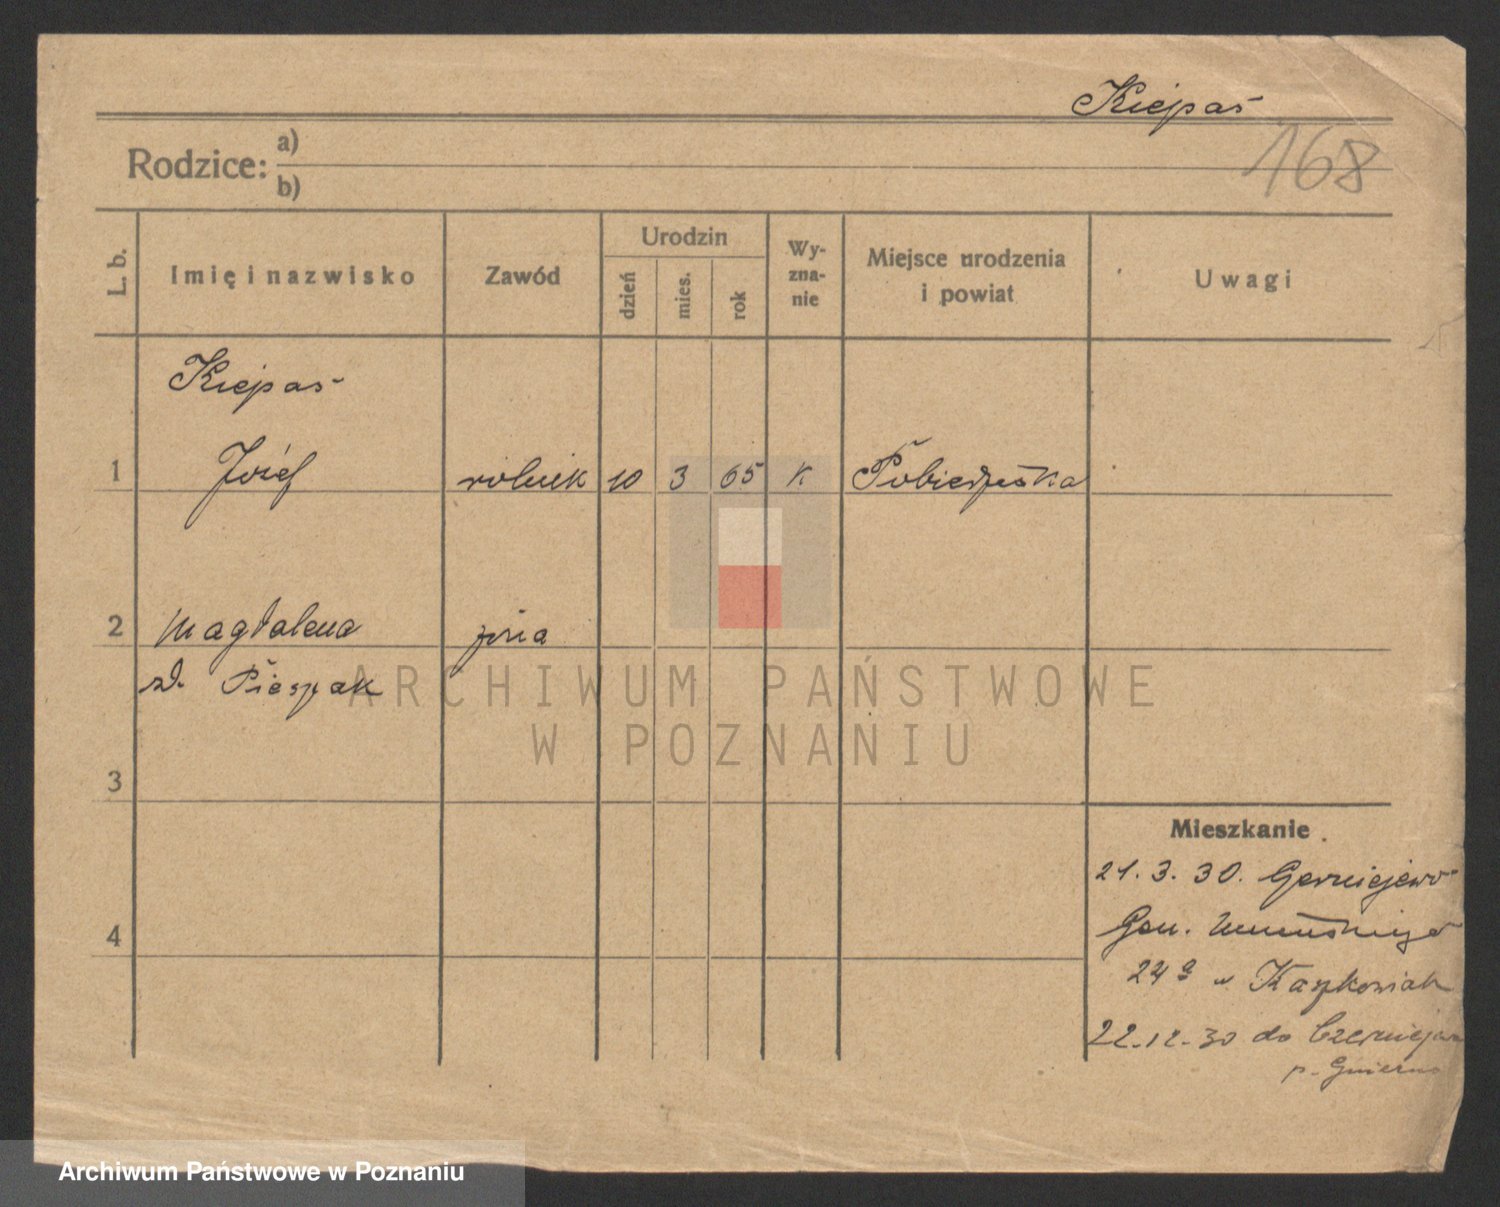 Kiejpaś
168
Rodzice: a)
b)
L. b.
Imię i nazwisko
Zawód
Urodzin
dzień
mies.
rok
Wy-
zna-
nie
Miejsce urodzenia
i powiat
Uwagi
Kiejpaś
1 Józef rolnik 10 3 65 K Pobiedziska
2 Magdalena żona
zd. Pieszak
3
4
Mieszkanie
21. 3. 30. Czerniejewo
Gen. Umińskiego
24 a u Kaczkowiak
22.12.30 do Czerniejewa
p. Gniezno
ARCHIWUM PAŃSTWOWE
W POZNANIU
Archiwum Państwowe w Poznaniu